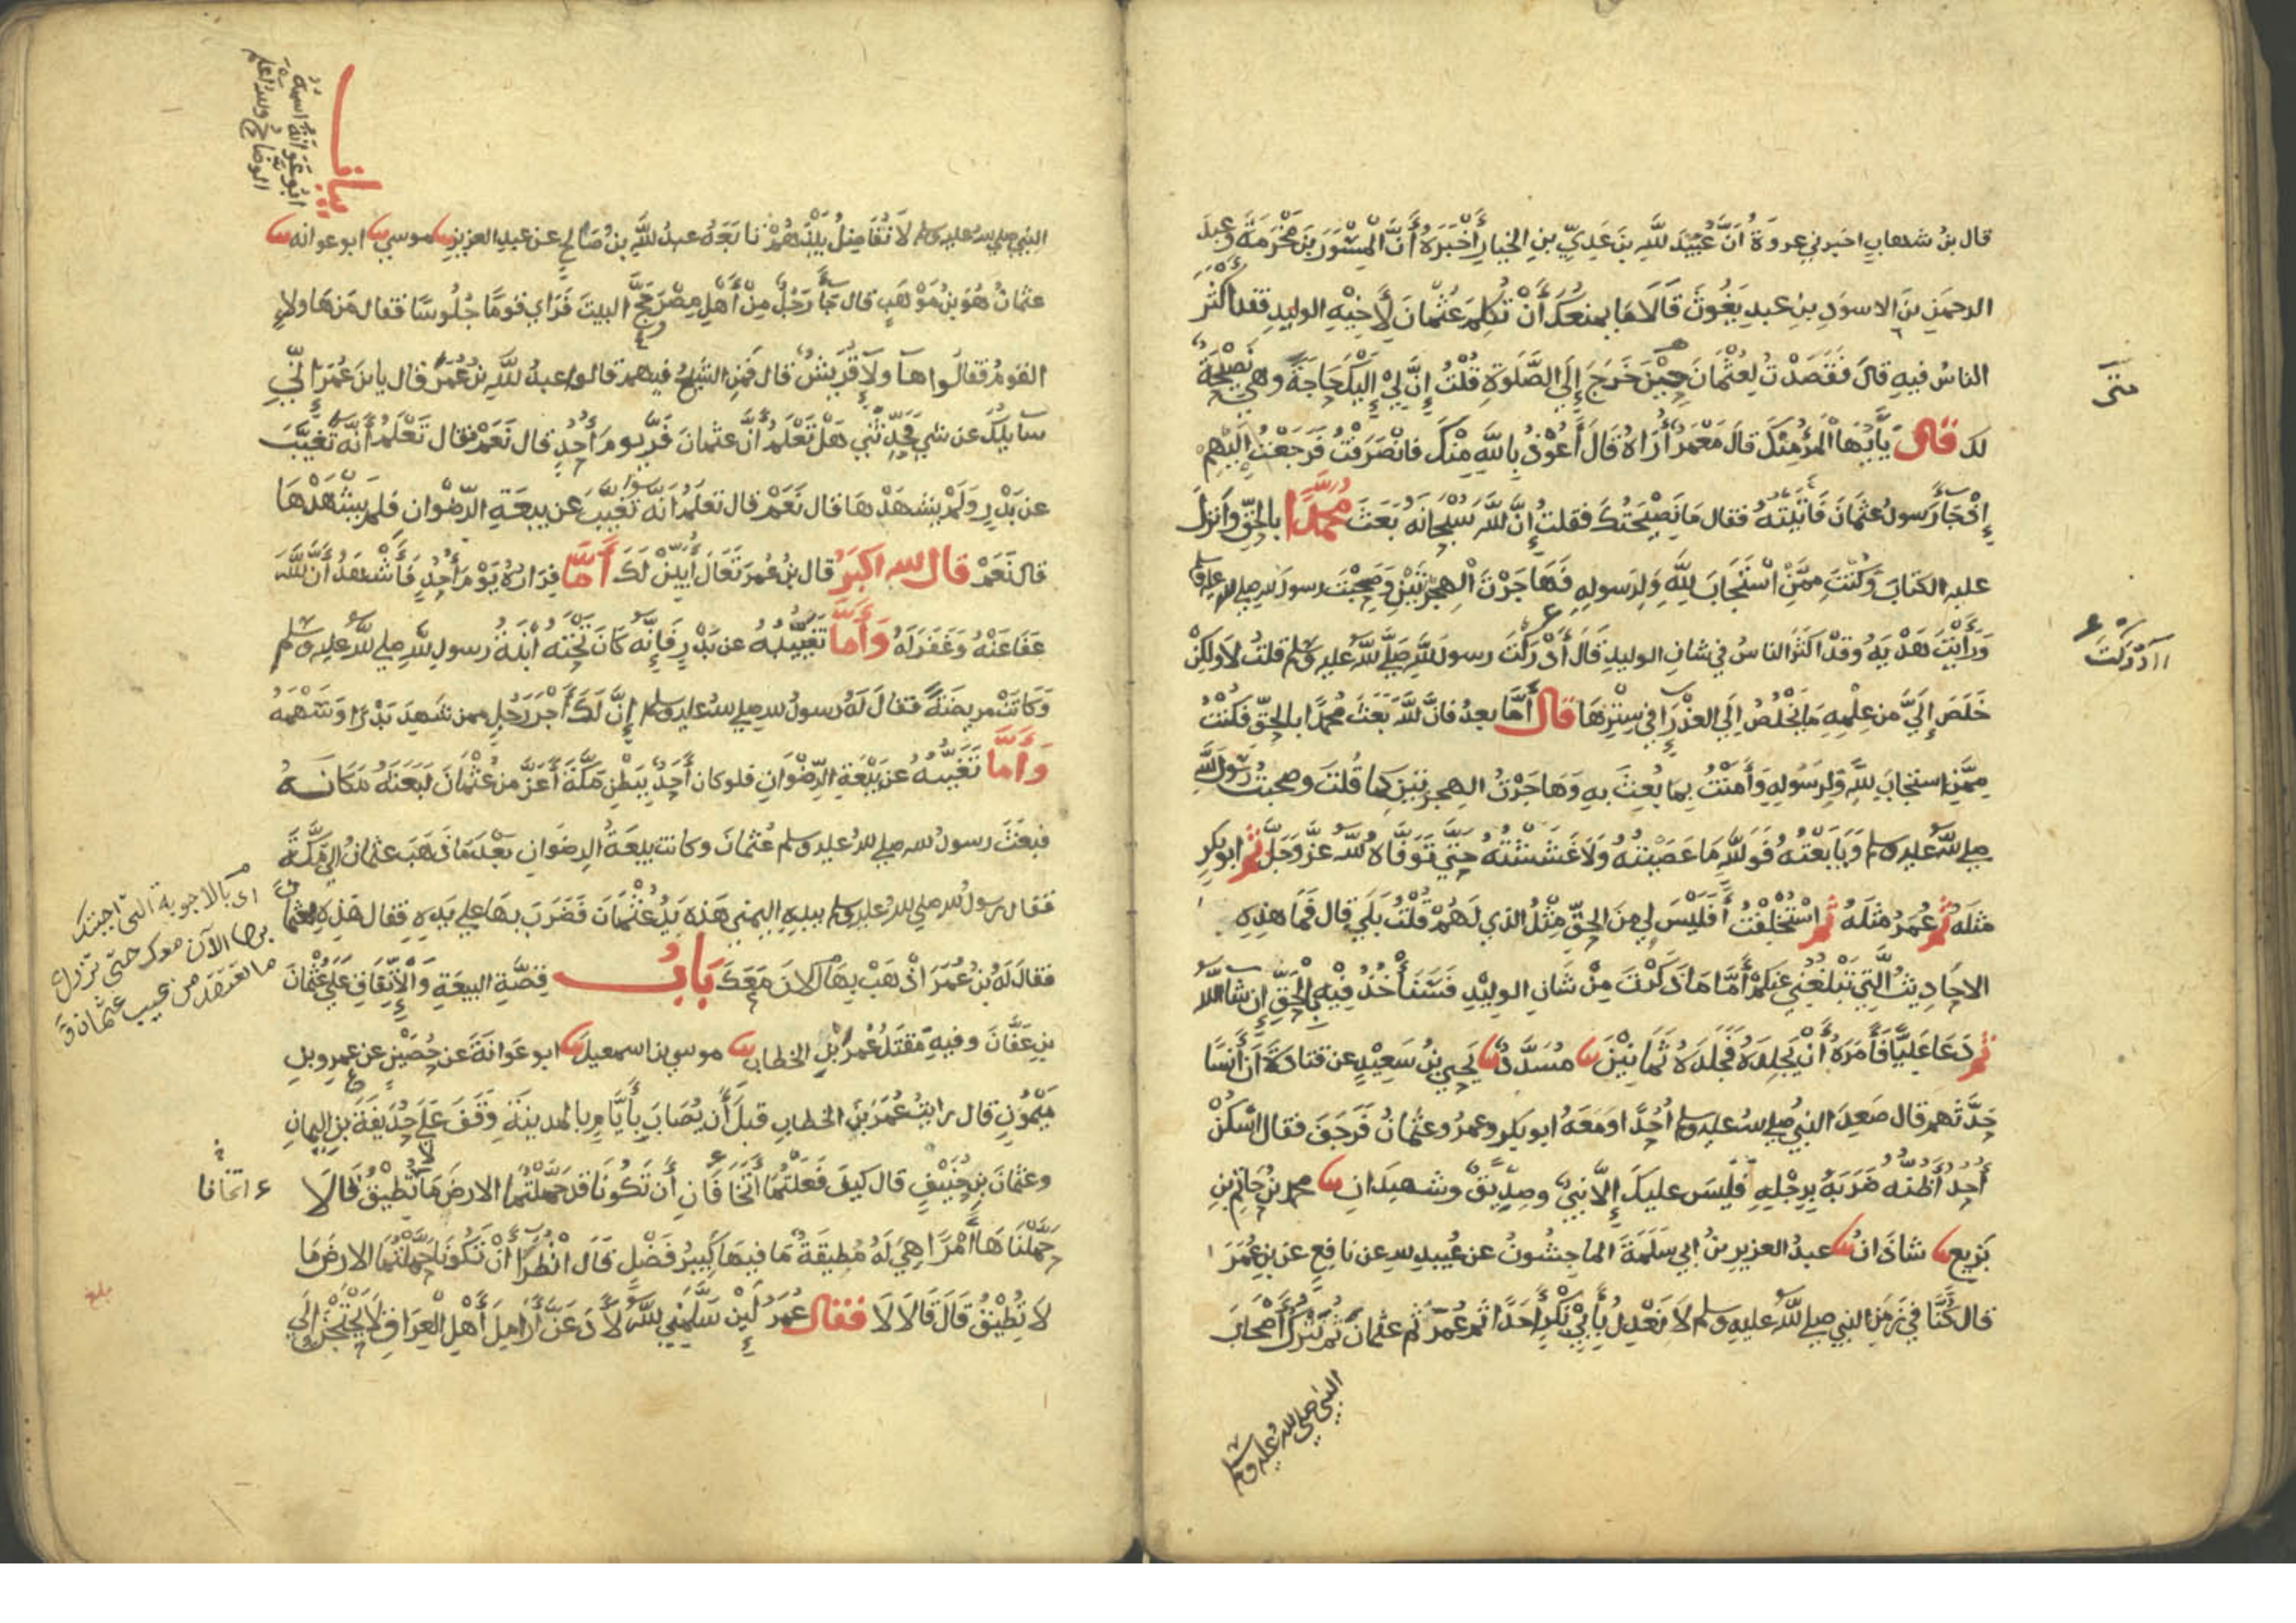 قال بن شهاب اخبرني عروة أن عبيد الله بن عدي بن الخيار أخبره أن المسور بن مخرمة وعبد
الرحمن بن الاسود بن عبد يغوث قالا ما يمنعك أن تكلم عثمان لأخيه الوليد فقد أكثر
الناس فيه قال فقصدت لعثمان حين خرج إلى الصلوة قلت إن لي إليك حاجة وهي نصيحة
لك قال يا أيها المرء منك قال معمر أراه قال أعوذ بالله منك فانصرفت فرجعت إليهم
إذ جاء رسول عثمان فأتيته فقال ما نصيحتك فقلت إن الله سبحانه بعث محمدا بالحق وأنزل
عليه الكتاب وكنت ممن استجاب لله ولرسوله فهاجرت الهجرتين وصحبت رسول الله صلى الله عليه وسلم
ورأيت هديه وقد اكثر الناس في شان الوليد قال أدركت رسول الله صلى الله عليه وسلم قلت لا ولكن
خلص إلي من علمه ما يخلص إلى العذراء في سترها قال أما بعد فان الله بعث محمدا بالحق فكنت
ممن استجاب لله ولرسوله وأمنت بما بعث به وهاجرت الهجرتين كما قلت وصحبت رسول الله
صلى الله عليه وسلم وبايعته فوالله ما عصيته ولا غششته حتى توفاه الله عز وجل ثم ابو بكر
مثله ثم عمر مثله ثم استخلفت أفليس لي من الحق مثل الذي لهم قلت بلى قال فما هذه
الاحاديث التي تبلغني عنكم أما ما ذكرت من شان الوليد فسنأخذ فيه بالحق إن شاء الله
ثم دعا عليا فأمره أن يجلده فجلده ثمانين مسدد يحيى بن سعيد عن قتادة أن أنسا
حدثهم قال صعد النبي صلى الله عليه وسلم أحدا ومعه ابو بكر وعمر وعثمان فرجف فقال اسكن
أحد أظنه ضربه برجله فليس عليك إلا نبي وصديق وشهيدان محمد بن حاتم بن
بزيع شاذان عبد العزيز بن ابي سلمة الماجشون عن عبيد الله عن نافع عن بن عمر
قال كنا في زمن النبي صلى الله عليه وسلم لا نعدل بأبي بكر أحدا ثم عمر ثم عثمان ثم نترك أصحاب
النبي صلى الله عليه وسلم
أدركت
النبي صلى الله عليه وسلم لا نفاضل بينهم تابعه عبد الله بن صالح عن عبد العزيز موسى ابو عوانه
عثمان هو بن موهب قال جاء رجل من أهل مصر حج البيت فرأى قوما جلوسا فقال من هاولاء
القوم فقالوا هاولاء قريش قال فمن الشيخ فيهم قالوا عبد الله بن عمر قال يا بن عمر إني
سايلك عن شي فحدثني هل تعلم أن عثمان فر يوم أحد قال نعم فقال تعلم أنه تغيب
عن بدر ولم يشهدها قال نعم قال تعلم انه تغيب عن بيعة الرضوان فلم يشهدها
قال نعم قال الله اكبر قال بن عمر تعال أبين لك أما فراره يوم أحد فأشهد أن الله
عفا عنه وغفر له وأما تغيبه عن بدر فإنه كان تحته ابنة رسول الله صلى الله عليه وسلم
وكانت مريضة فقال له رسول الله صلى الله عليه وسلم إن لك أجر رجل ممن شهد بدرا وسهمه
وأما تغيبه عن بيعة الرضوان فلو كان أحد ببطن مكة أعز من عثمان لبعثه مكانه
فبعث رسول الله صلى الله عليه وسلم عثمان وكانت بيعة الرضوان بعد ما ذهب عثمان إلى مكة
فقال رسول الله صلى الله عليه وسلم بيده اليمنى هذه يد عثمان فضرب بها على يده فقال هذه لعثمان
فقال له بن عمر اذهب بها الان معك باب قصة البيعة والإتفاق على عثمان
بن عفان وفيه مقتل عمر بن الخطاب موسى بن اسمعيل ابو عوانة عن حصين عن عمرو بن
ميمون قال رايت عمر بن الخطاب قبل أن يصاب بأيام بالمدينة وقف على حذيفة بن اليمان
وعثمان بن حنيف قال كيف فعلتما أتخافان أن تكونا قد حملتما الارض ما لا تطيق قالا
حملناها أمرا هي له مطيقة ما فيها كبير فضل قال انظرا أن تكونا حملتما الارض ما
لا تطيق قال قالا لا فقال عمر لين سلمني الله لأدعن أرامل أهل العراق لا يحتجن إلى
ابو عوانة اسمه
الوضاح والله اعلم
اى بالاجوبة التى اجبتك
بها الآن معك حتى تزول
ما تعتقد من عيب عثمان
اتخافا
بلغ